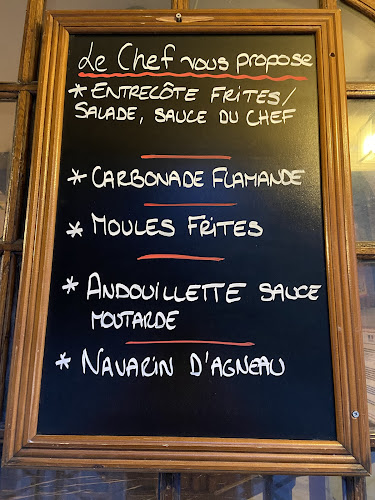 Le Chef vous propose
* ENTRECÔTE FRITES/
SALADE, SAUCE DU CHEF
* CARBONADE FLAMANDE
* MOULES FRITES
* ANDOUILLETTE SAUCE
MOUTARDE
* NAVARIN D'AGNEAU